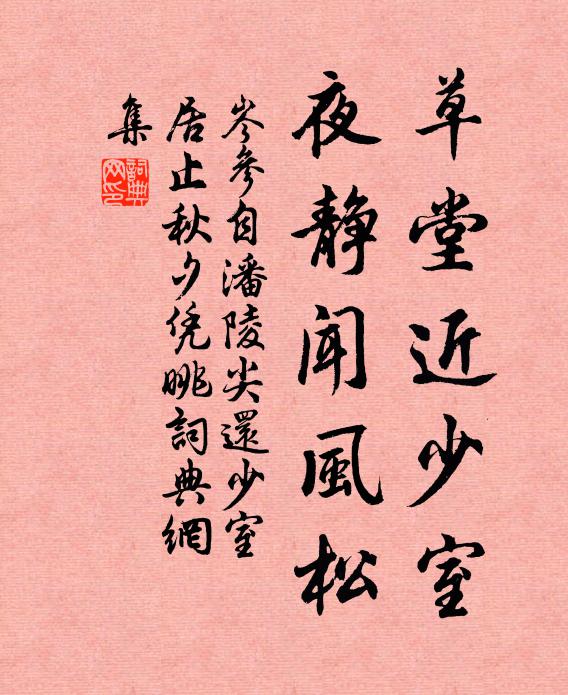 草堂近少室
夜静闻風松
岑參自潘陵尖還少室
居止秋夕凭眺詞典網
集
詞典
网印